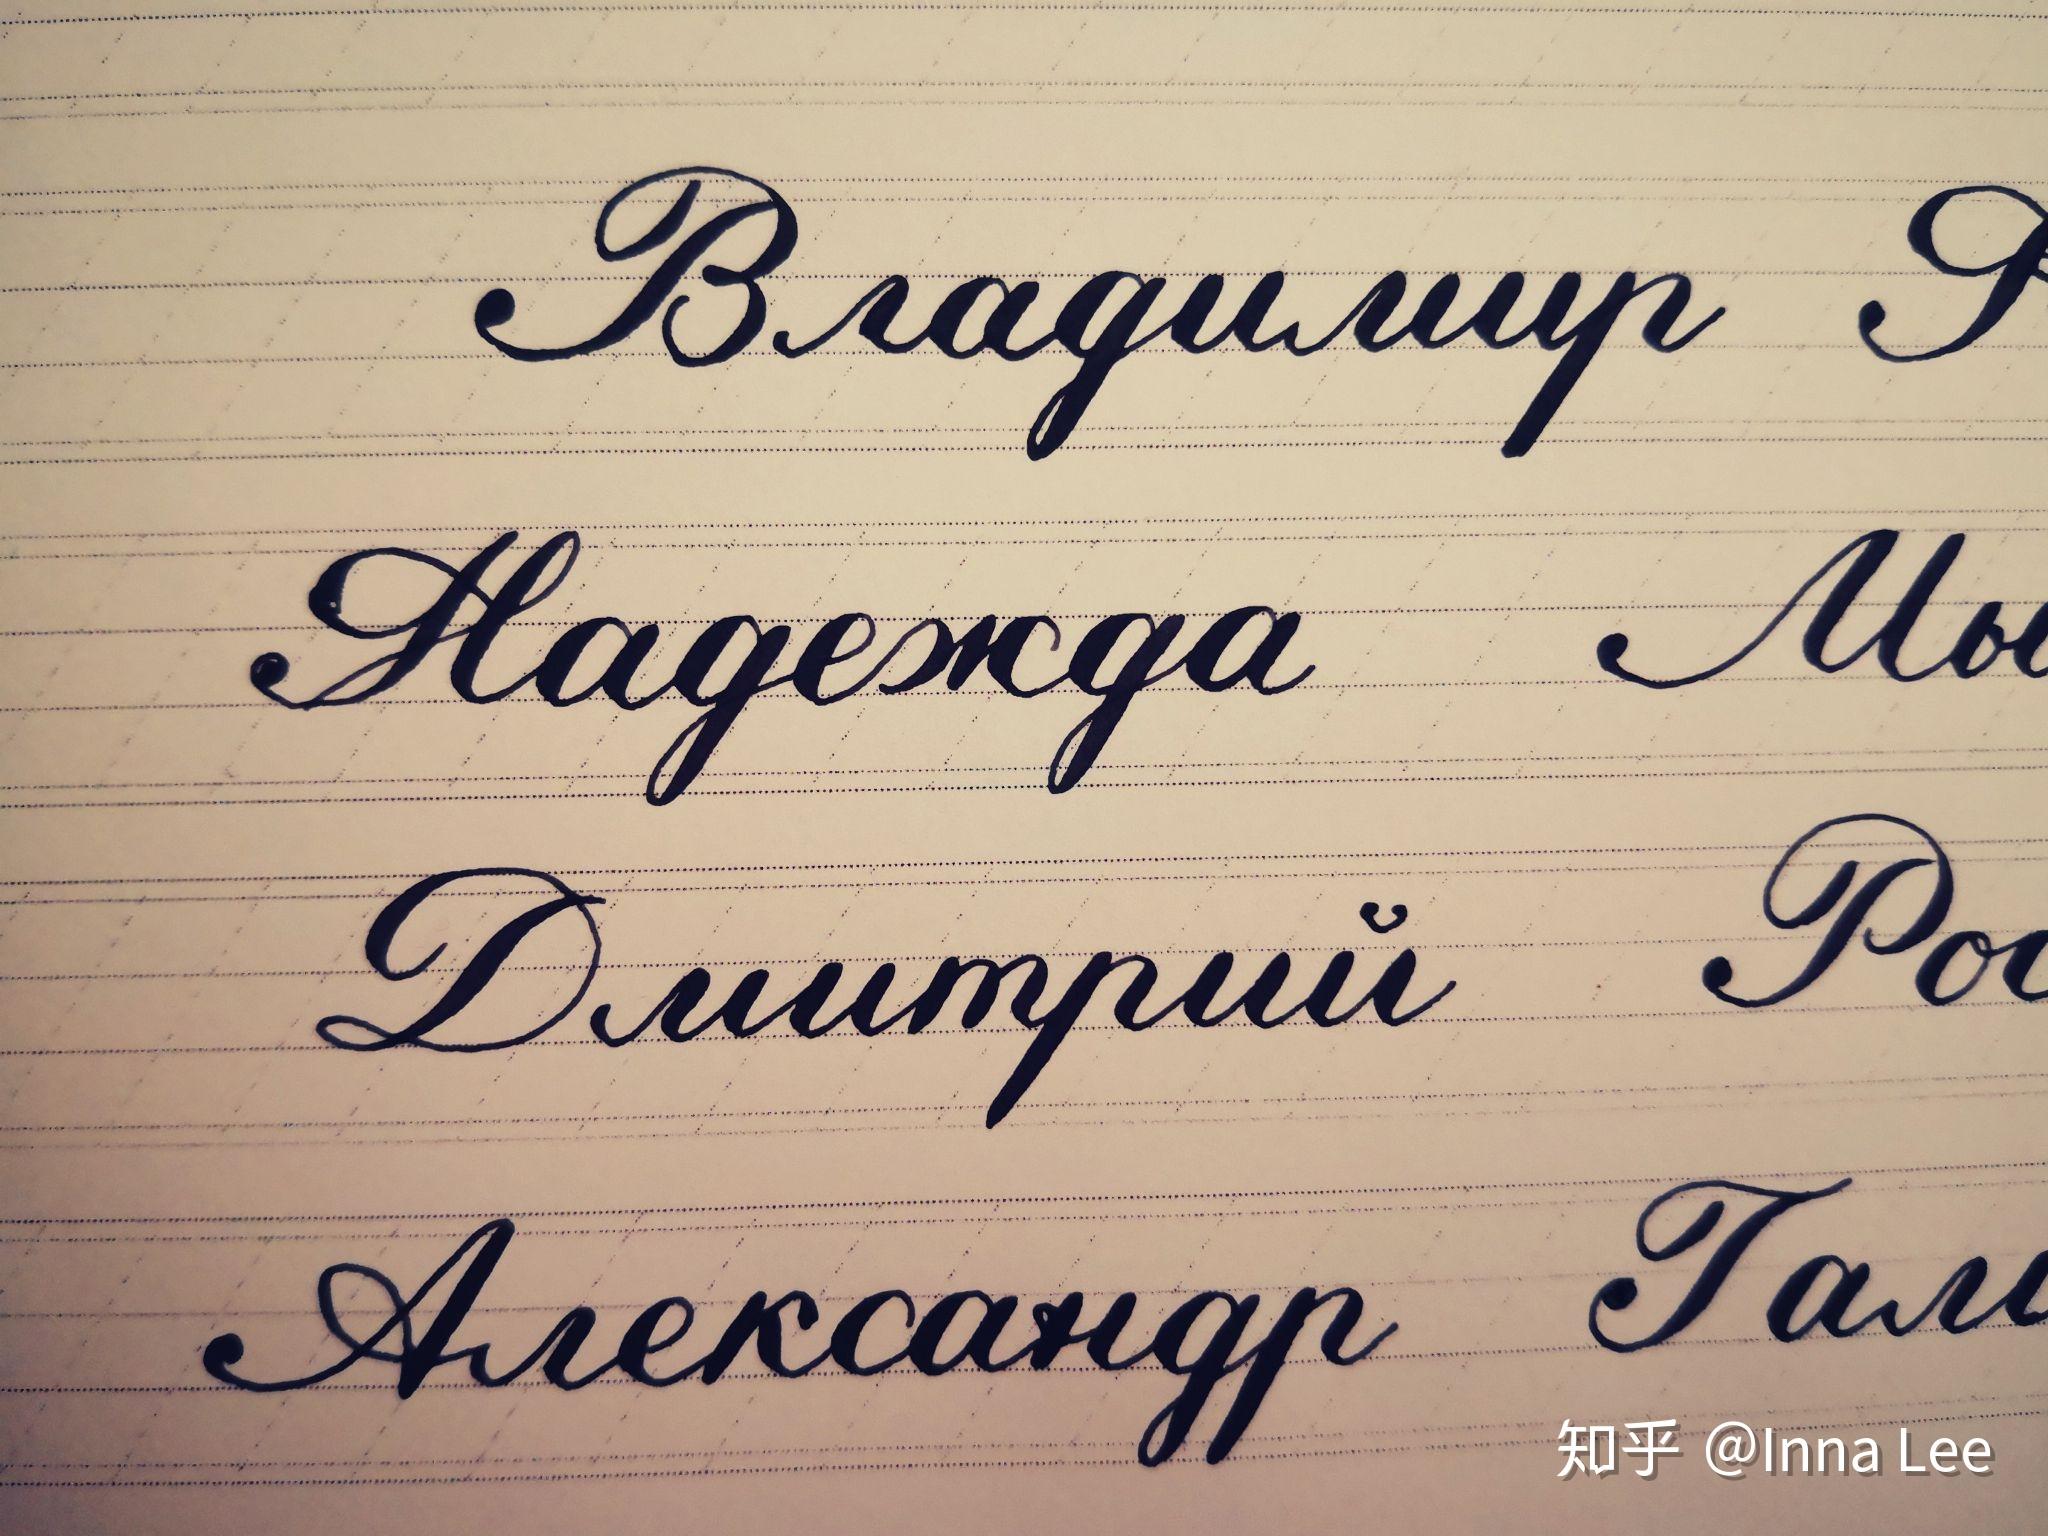 Владимир
Надежда Мы
Дмитрий Рос
Александр Гали
知乎 @Inna Lee